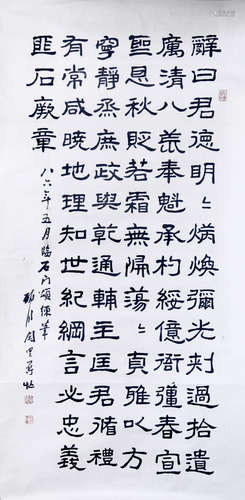 辭曰君德明〻炳煥彌光刺過拾遺
厲清八荒奉魁承杓綏億衙彊春宣
聖恩秋貶若霜無偏蕩〻真雅以方
寧靜烝庶政與乾通輔主匡君循禮
有常咸曉地理知世紀綱言必忠義
匪石厥章
八六年五月臨石门頌